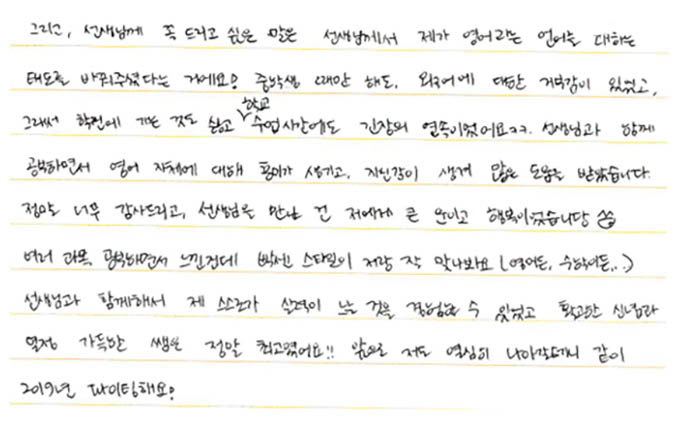 그리고, 선생님께 꼭 드리고 싶은 말은 선생님께서 제가 영어라는 언어를 대하는
태도를 바꿔주셨다는 거에요! 중학생 때만 해도, 외국어에 대한 거부감이 있었고,
그래서 학원에 가는 것도 싫고 학교 수업시간에도 긴장의 연속이었어요ㅋㅋ. 선생님과 함께
공부하면서 영어 자체에 대해 흥미가 생기고, 자신감이 생겨 많은 도움을 받았습니다.
정말로 너무 감사드리고, 선생님을 만난 건 저에게 큰 운이고 행복이었습니당
여러 과목 공부하면서 느낀건데 빡센 스타일이 저랑 잘 맞나봐요 (영어든, 수학이든,..)
선생님과 함께해서 제 스스로가 실력이 느는 것을 경험할 수 있었고 확고한 신념과
열정 가득한 쌤은 정말 최고였어요!! 앞으로 저도 열심히 나아갈테니 같이
2019년 파이팅해요!